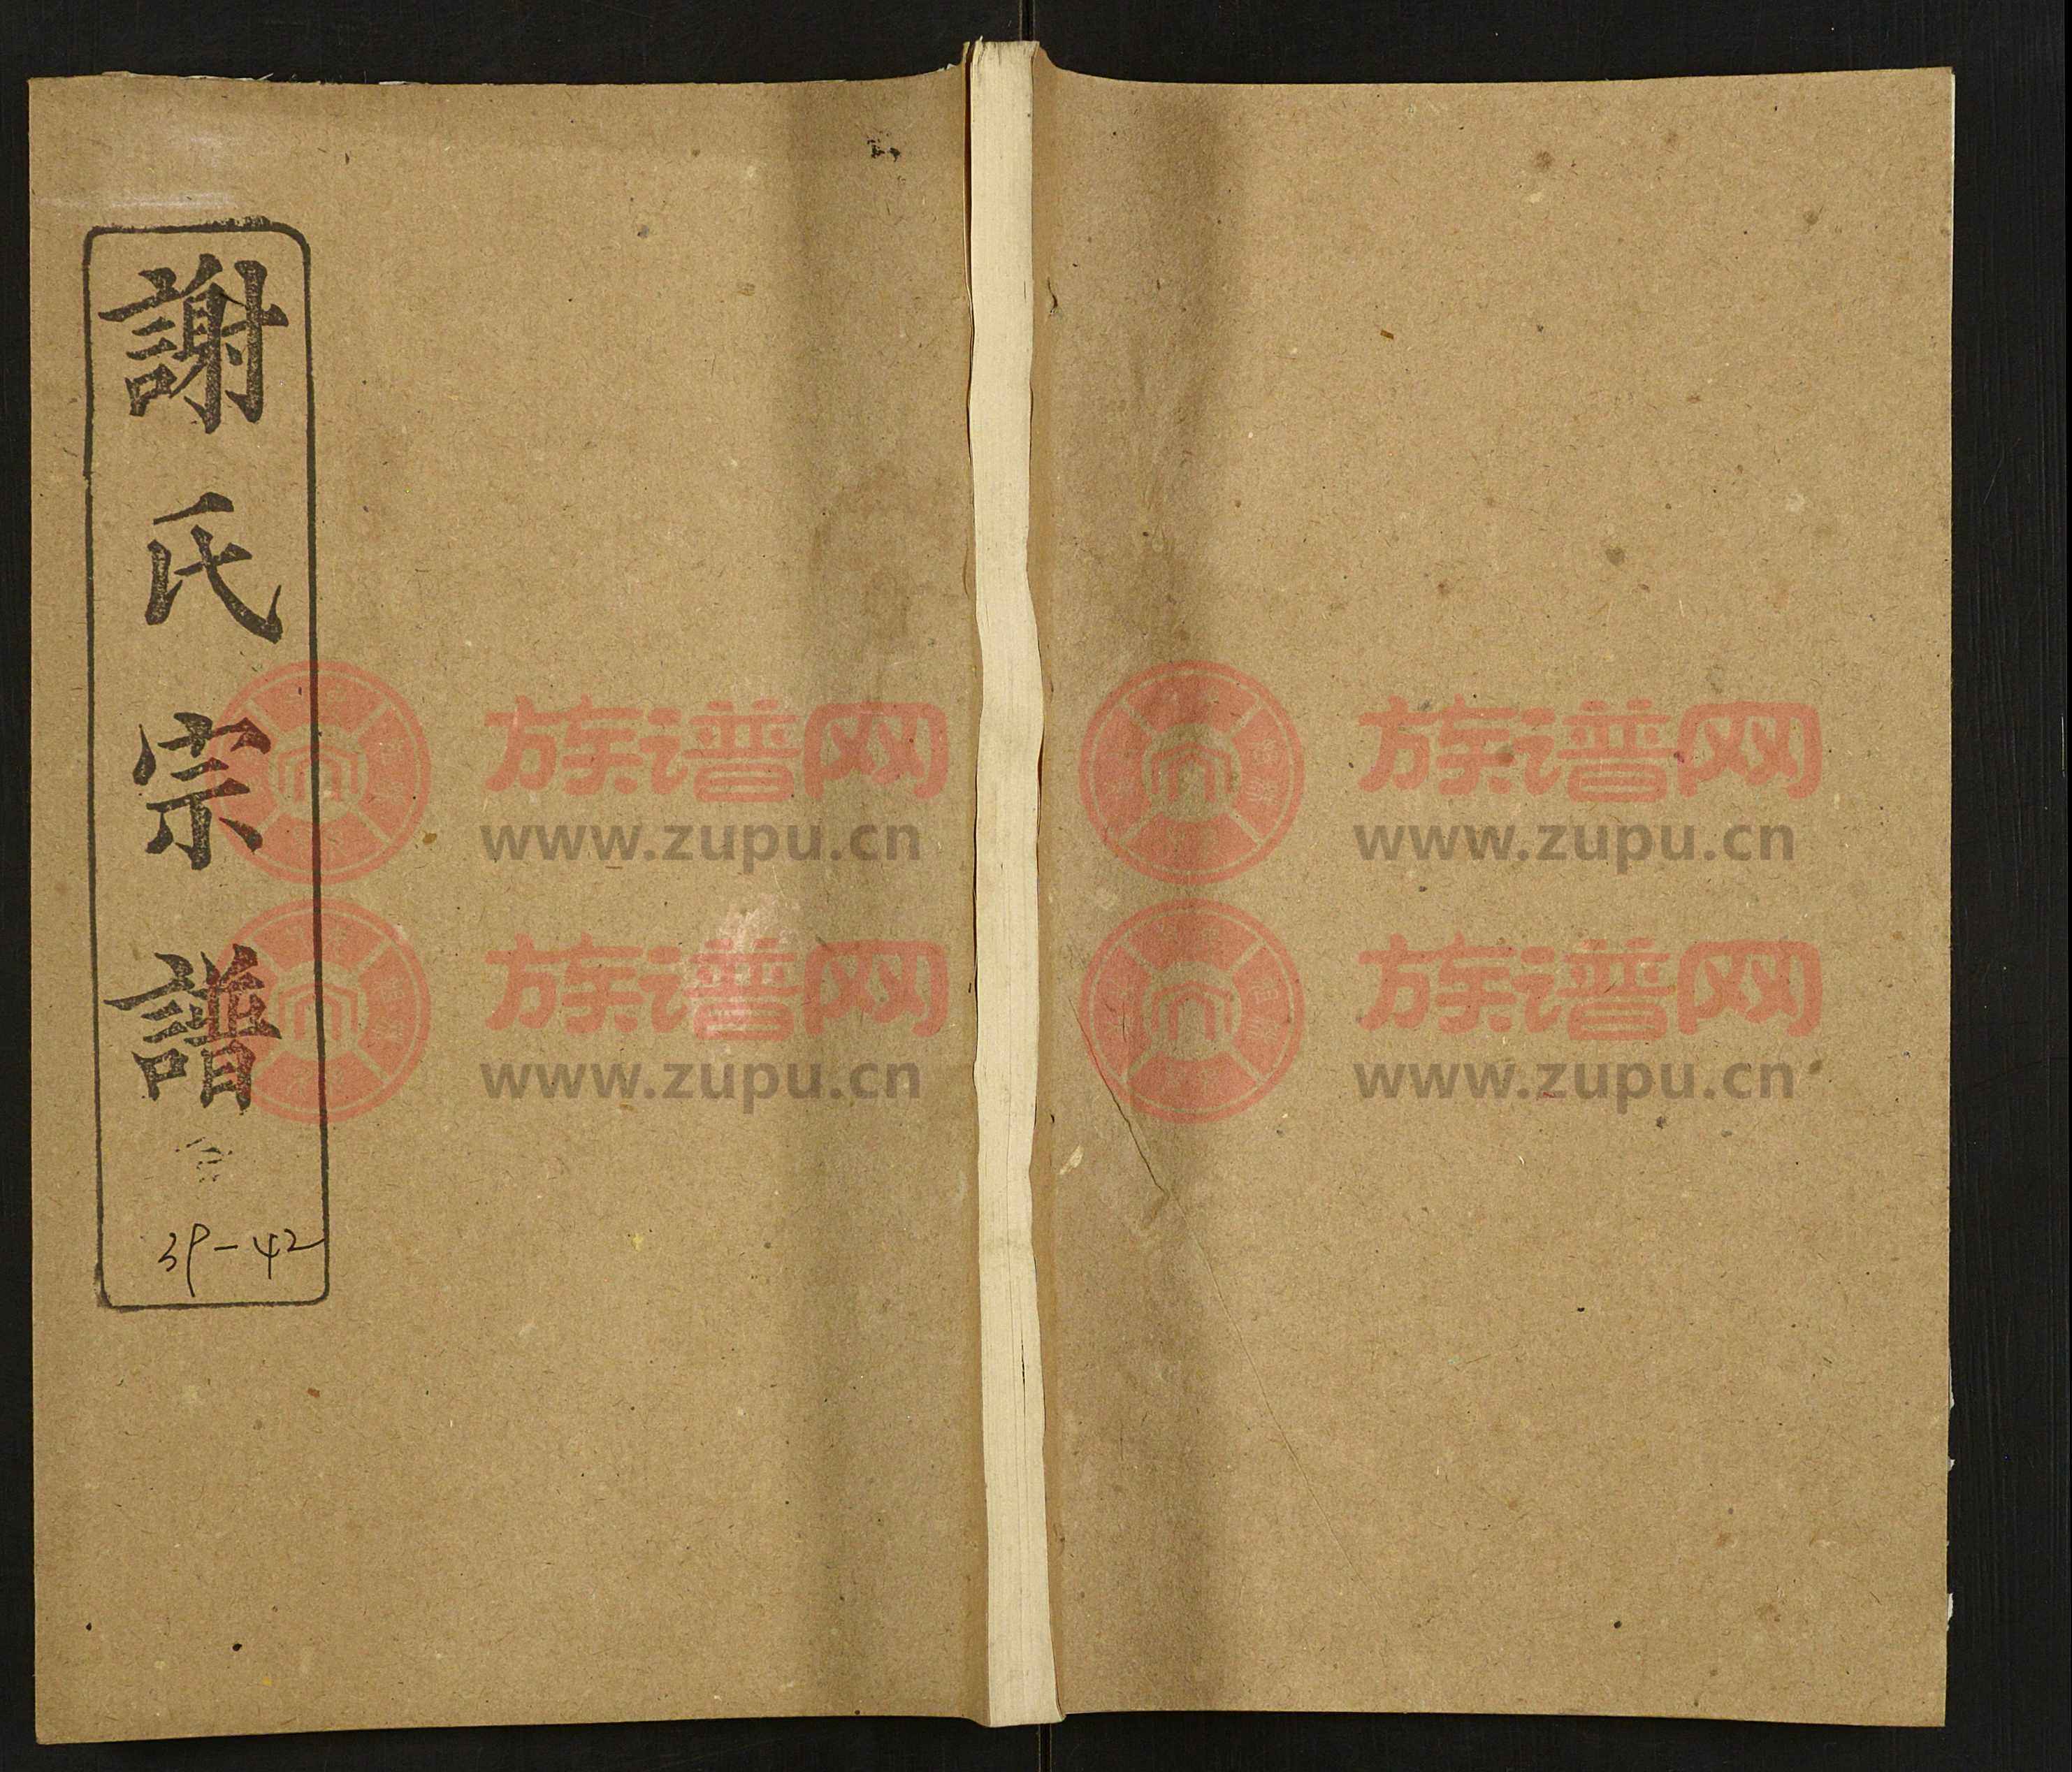 謝氏宗譜
39-42
族谱网
www.zupu.cn
族谱网
www.zupu.cn
族谱网
www.zupu.cn
族谱网
www.zupu.cn